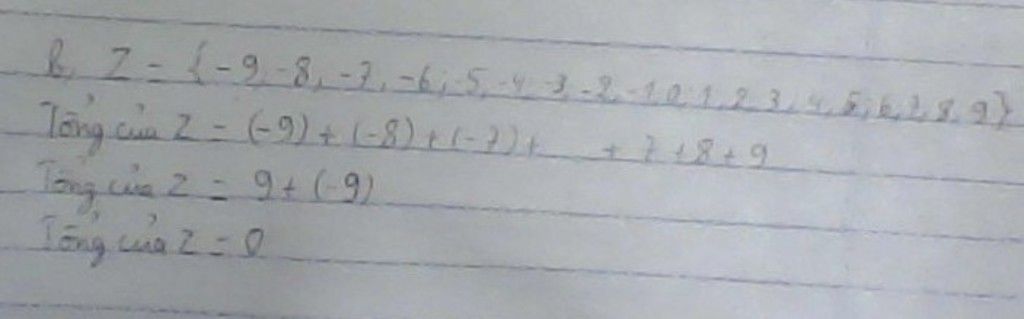 b, Z = {-9, -8, -7, -6, -5, -4, -3, -2, -1, 0, 1, 2, 3, 4, 5, 6, 7, 8, 9}
Tổng của Z = (-9) + (-8) + (-7) + ... + 7 + 8 + 9
Tổng của Z = 9 + (-9)
Tổng của Z = 0